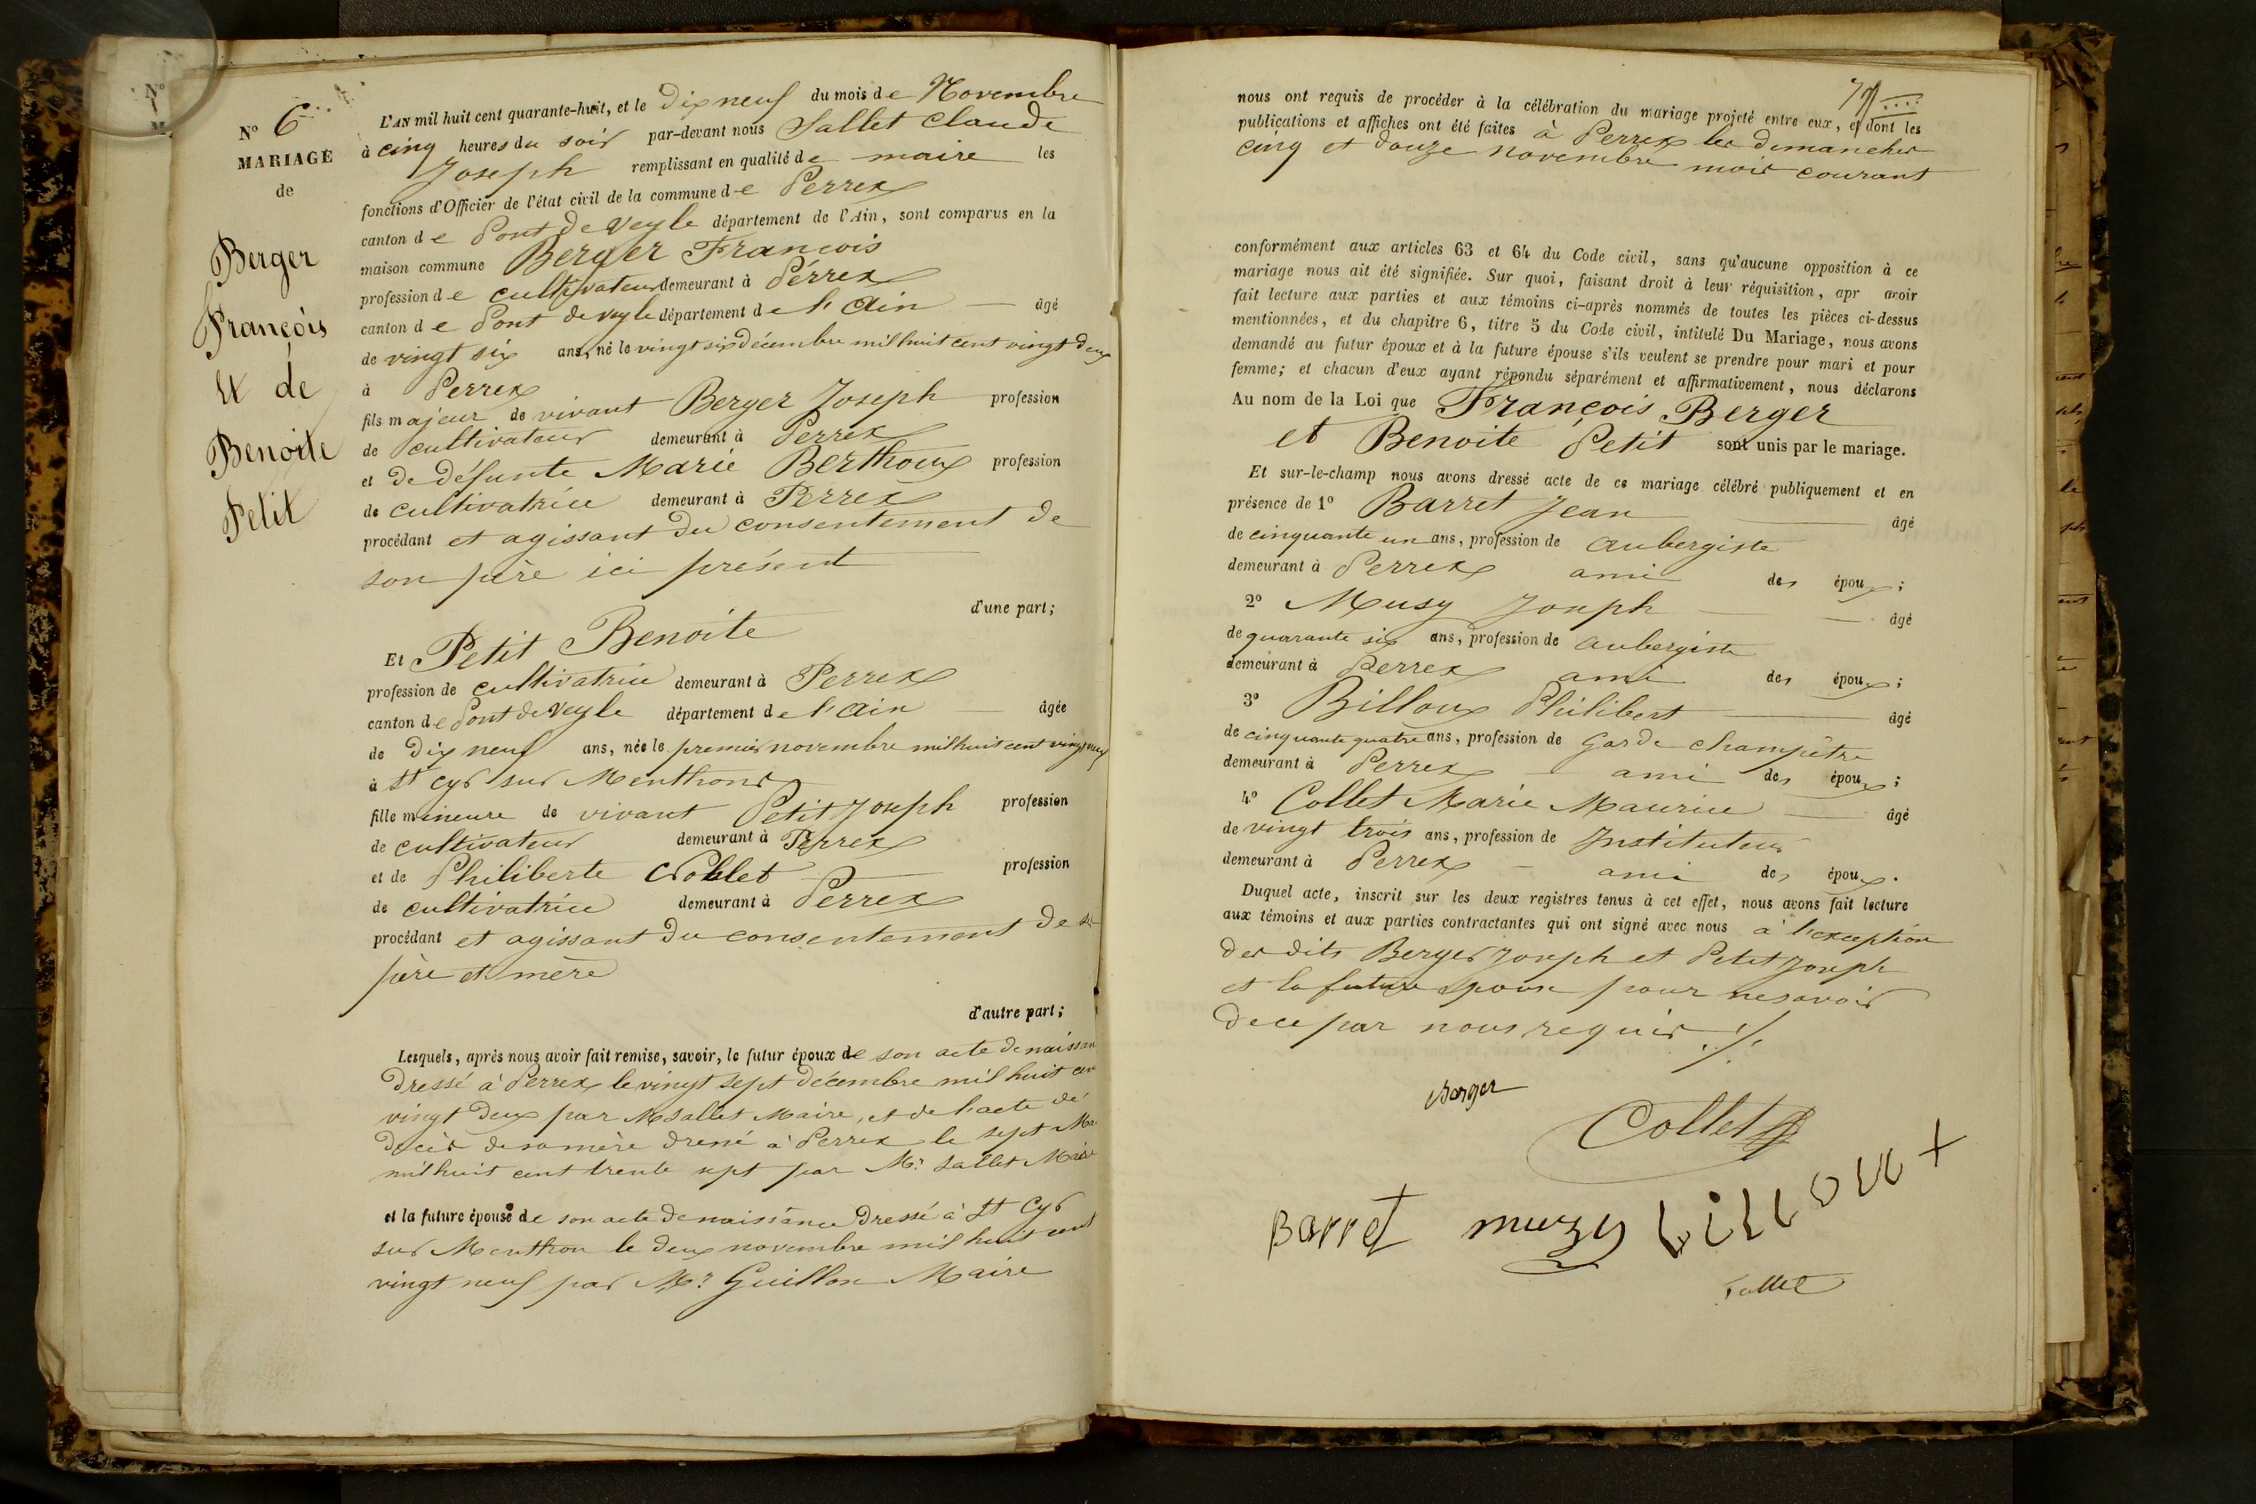 N°
M
N° 6
MARIAGE
de
Berger
François
et de
Benoite
Petit
L'AN mil huit cent quarante-huit, et le dix neuf du mois de Novembre
à cinq heures du soir par-devant nous Sallet Claude
Joseph remplissant en qualité de maire les
fonctions d'Officier de l'état civil de la commune de Perrex
canton de Pont de Veyle département de l'Ain, sont comparus en la
maison commune Berger François
profession de cultivateur demeurant à Pérrex
canton de Pont de Veyle département de l'Ain âgé
de vingt six ans, né le vingt six décembre mil huit cent vingt deux
à Perrex
fils majeur de vivant Berger Joseph profession
de cultivateur demeurant à Perrex
et de défunte Marie Berthoux profession
de cultivatrice demeurant à Perrex
procédant et agissant du consentement de
son père ici présent
d'une part;
Et Petit Benoite
profession de cultivatrice demeurant à Perrex
canton de Pont de Veyle département de l'Ain âgée
de dix neuf ans, née le premier novembre mil huit cent vingt neuf
à St Cyr sur Menthon
fille mineure de vivant Petit Joseph profession
de cultivateur demeurant à Perrex
et de Philiberte profession
de cultivatrice demeurant à Perrex
procédant et agissant du consentement de
père et mère
d'autre part;
Lesquels, après nous avoir fait remise, savoir, le futur époux de son acte de naissan
dressé à Perrex le vingt sept décembre mil huit cen
vingt deux par M Sallet Maire, et de l'acte de
décès de sa mère dressé à Perrex le sept
mil huit cent trente sept par Mr Sallet Maire
et la future épouse de son acte de naissance dressé à St Cyr
sur Menthon le deux novembre mil huit cent
vingt neuf par Mr Guillon Maire
nous ont requis de procéder à la célébration du mariage projeté entre eux, et dont les
publications et affiches ont été faites à Perrex les dimanches
cinq et douze novembre mois courant
conformément aux articles 63 et 64 du Code civil, sans qu'aucune opposition à ce
mariage nous ait été signifiée. Sur quoi, faisant droit à leur réquisition, apr avoir
fait lecture aux parties et aux témoins ci-après nommés de toutes les pièces ci-dessus
mentionnées, et du chapitre 6, titre 5 du Code civil, intitulé Du Mariage, nous avons
demandé au futur époux et à la future épouse s'ils veulent se prendre pour mari et pour
femme; et chacun d'eux ayant répondu séparément et affirmativement, nous déclarons
Au nom de la Loi que François Berger
et Benoite Petit sont unis par le mariage.
Et sur-le-champ nous avons dressé acte de ce mariage célébré publiquement et en
présence de 1° Barret Jean âgé
de cinquante un ans, profession de aubergiste
demeurant à Perrex ami des époux;
2° Musy Joseph âgé
de quarante six ans, profession de aubergiste
demeurant à Perrex ami des époux;
3° Billoux Philibert âgé
de cinquante quatre ans, profession de Garde champêtre
demeurant à Perrex ami des époux;
4° Collet Marie Maurice âgé
de vingt trois ans, profession de Instituteur
demeurant à Perrex ami des époux.
Duquel acte, inscrit sur les deux registres tenus à cet effet, nous avons fait lecture
aux témoins et aux parties contractantes qui ont signé avec nous à l'exception
des dits Berger Joseph et Petit Joseph
et la future épouse pour ne savoir
de ce par nous requis
Berger
Collet
Barret muzy billoux
Sallet